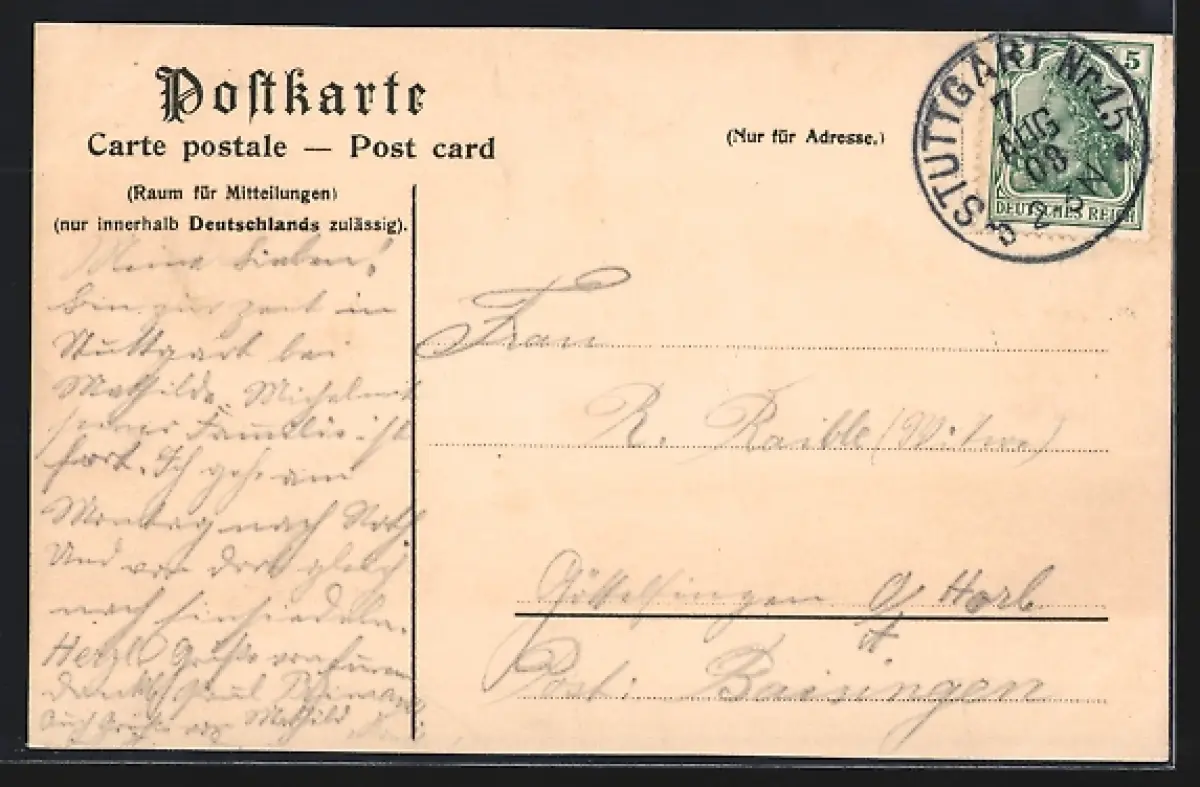 Postkarte
Carte postale — Post card
(Nur für Adresse.)
(Raum für Mitteilungen)
(nur innerhalb Deutschlands zulässig).
STUTTGART Nr. 15
7
AUG
08
2-3 N
5
DEUTSCHES REICH
Meine Lieben!
Bin zur Zeit in
Stuttgart bei
Mathilde. Michel mit
seiner Familie ist
fort. Ich gehe am
Montag nach
Und von dort gleich
nach Einsiedeln.
Herzl. Grüße von Eurem
Paul
Auch Grüße von Mathild
Frau
R. Raible (Witwe)
Göttelfingen O/A Horb
Post: Baisingen